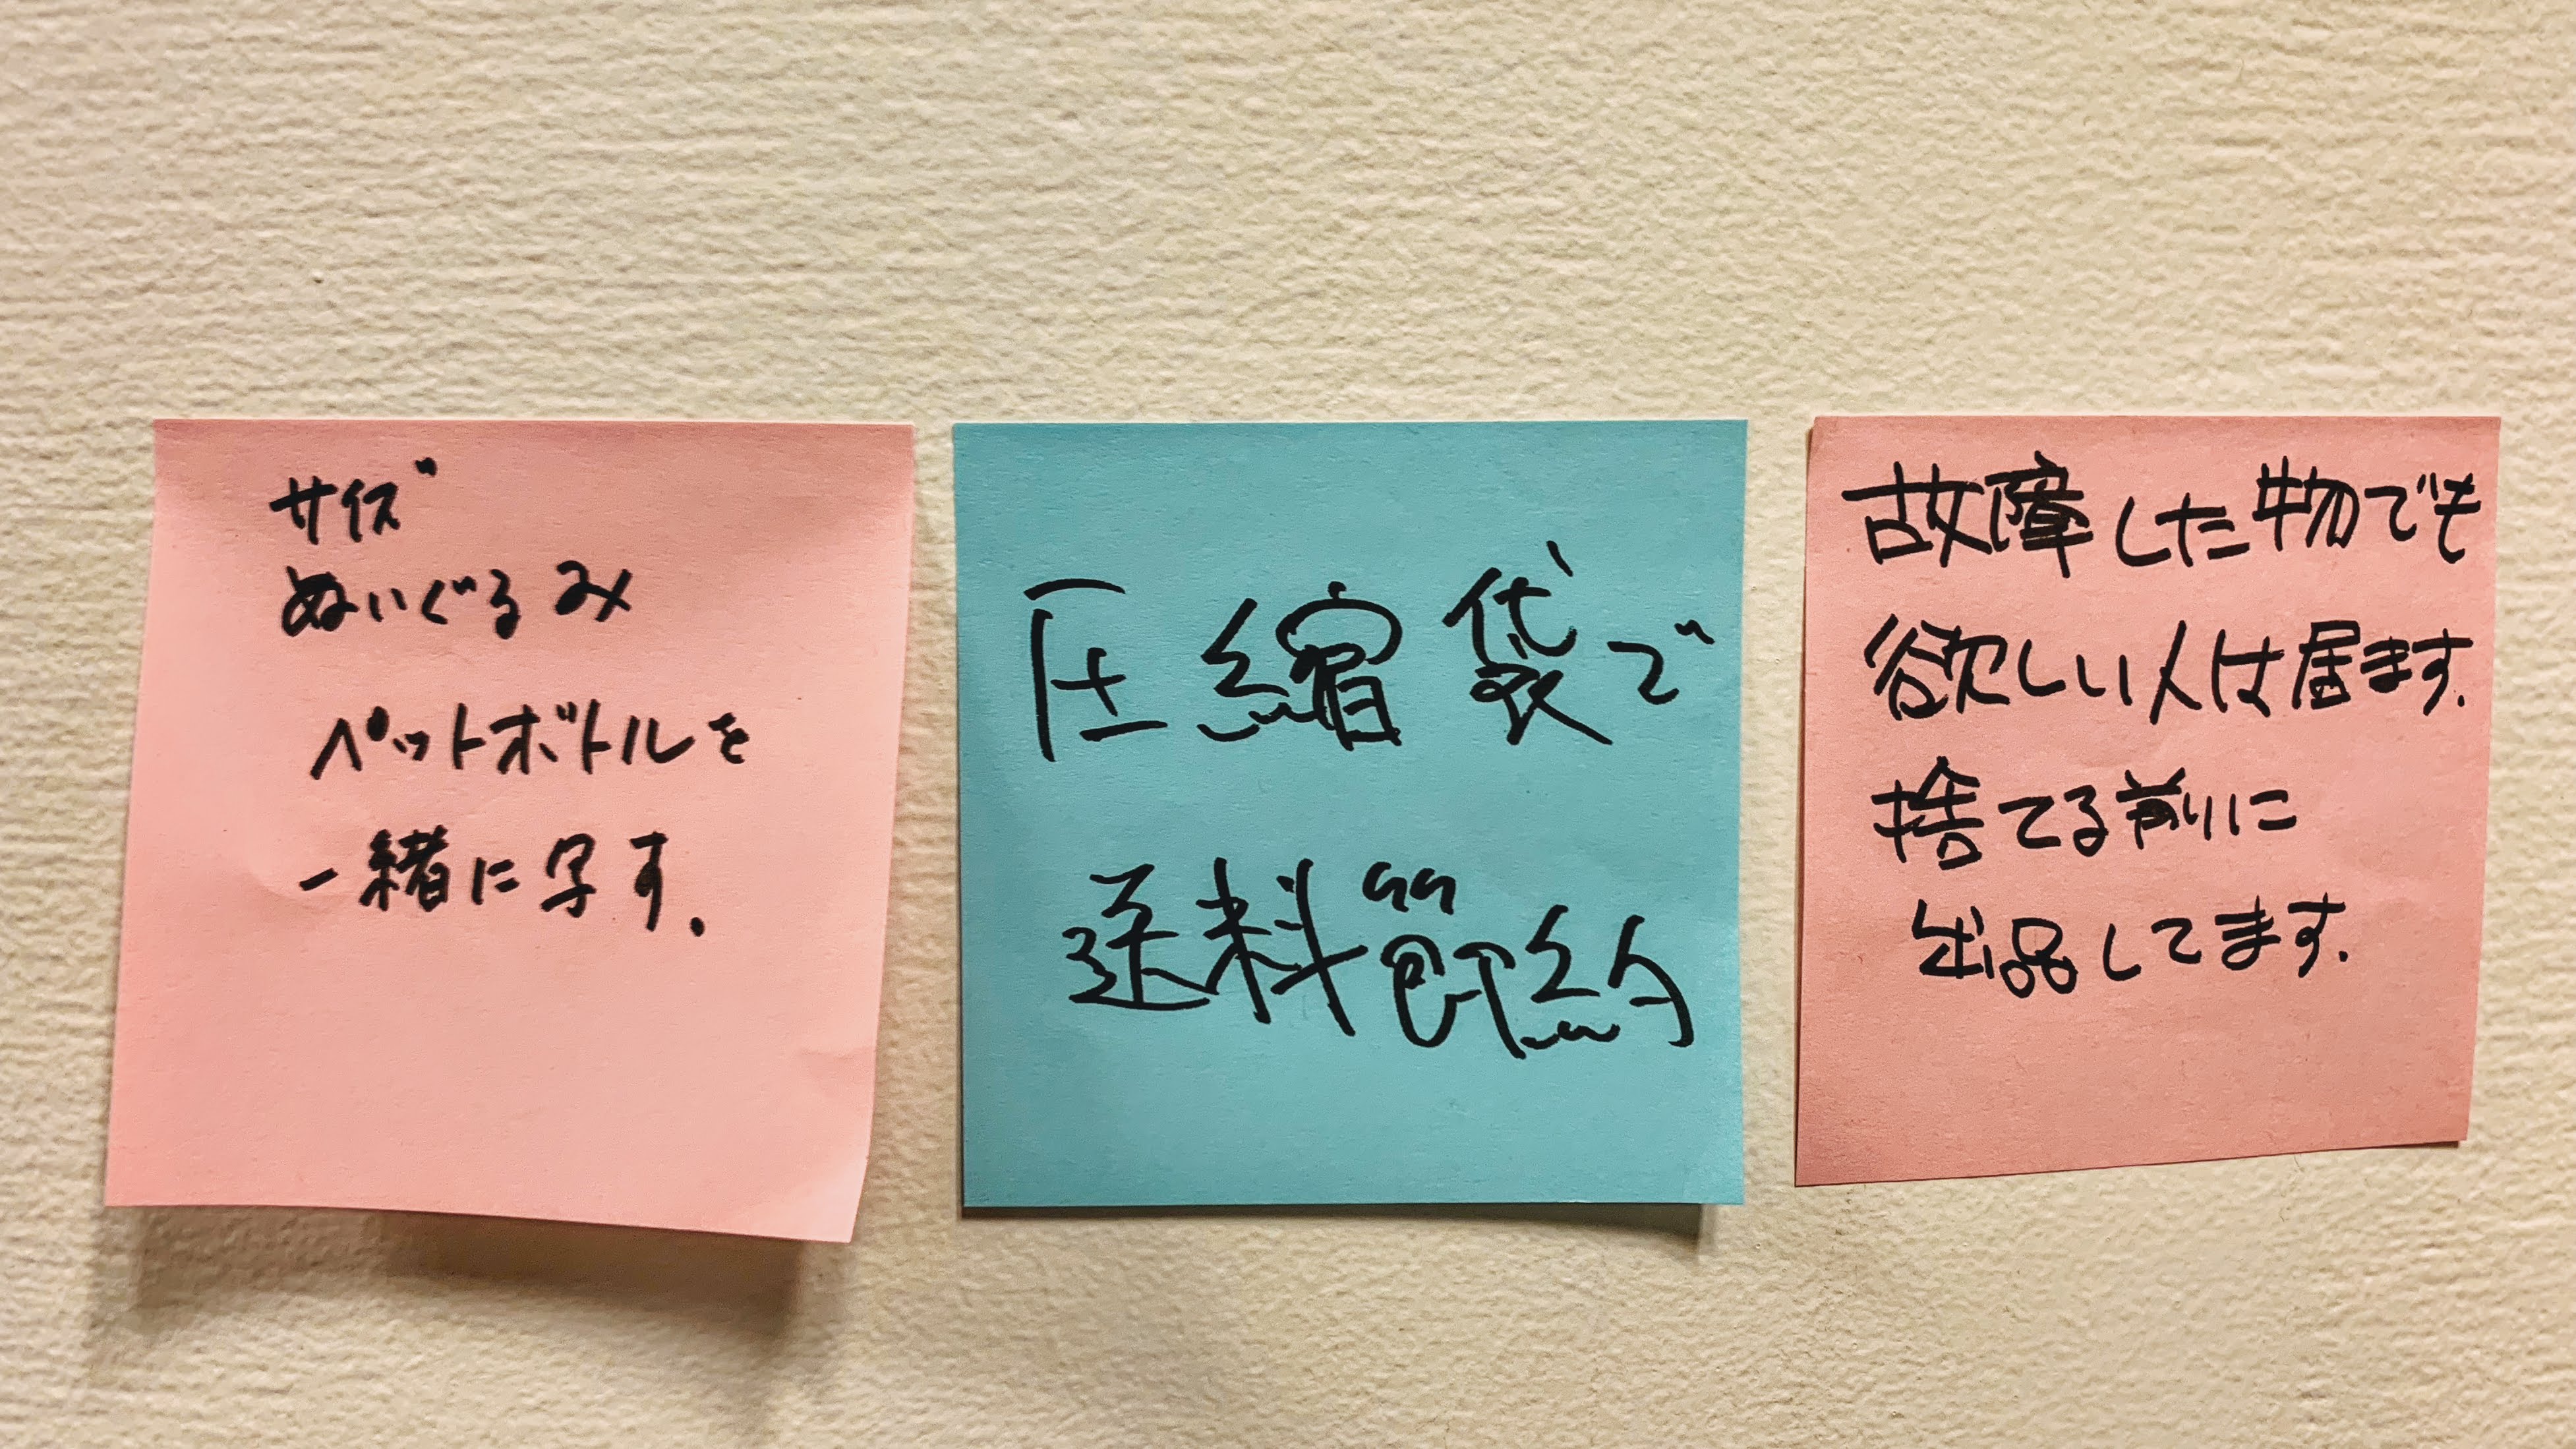 サイズ
ぬいぐるみ
ペットボトルを
一緒に写す.
圧縮袋で
送料節約
故障した物でも
欲しい人は居ます.
捨てる前に
出品してます.